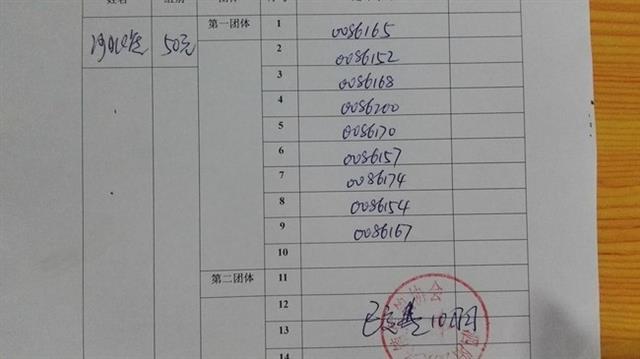 姓名 组别 团体 序号
第一团体 1 0086165
50元 2 0086152
3 0086168
4 0086200
5 0086170
6 0086157
7 0086174
8 0086154
9 0086167
10
第二团体 11
12
13
14
协会